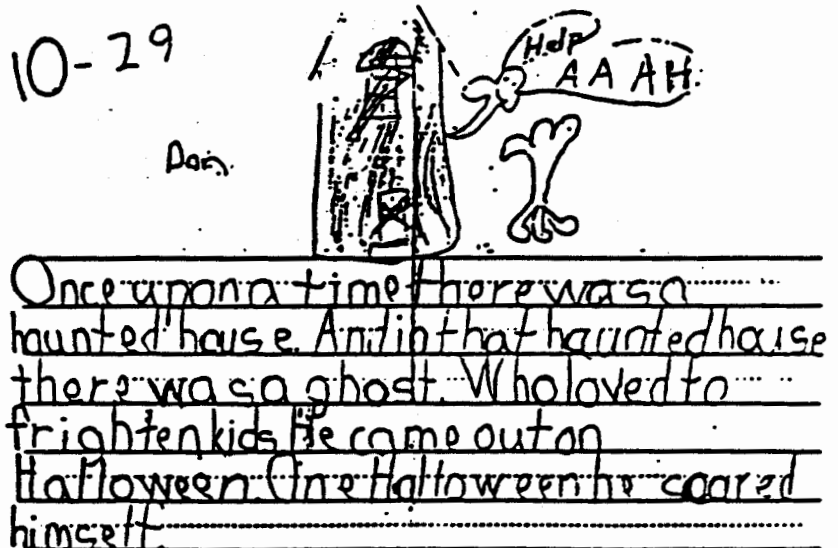 10-29
Help
AAAH
Dan
Once upon a time there was a
haunted house. And in that haunted house
there was a ghost. Who loved to
frighten kids He came out on
Halloween. One Halloween he scared
himself.